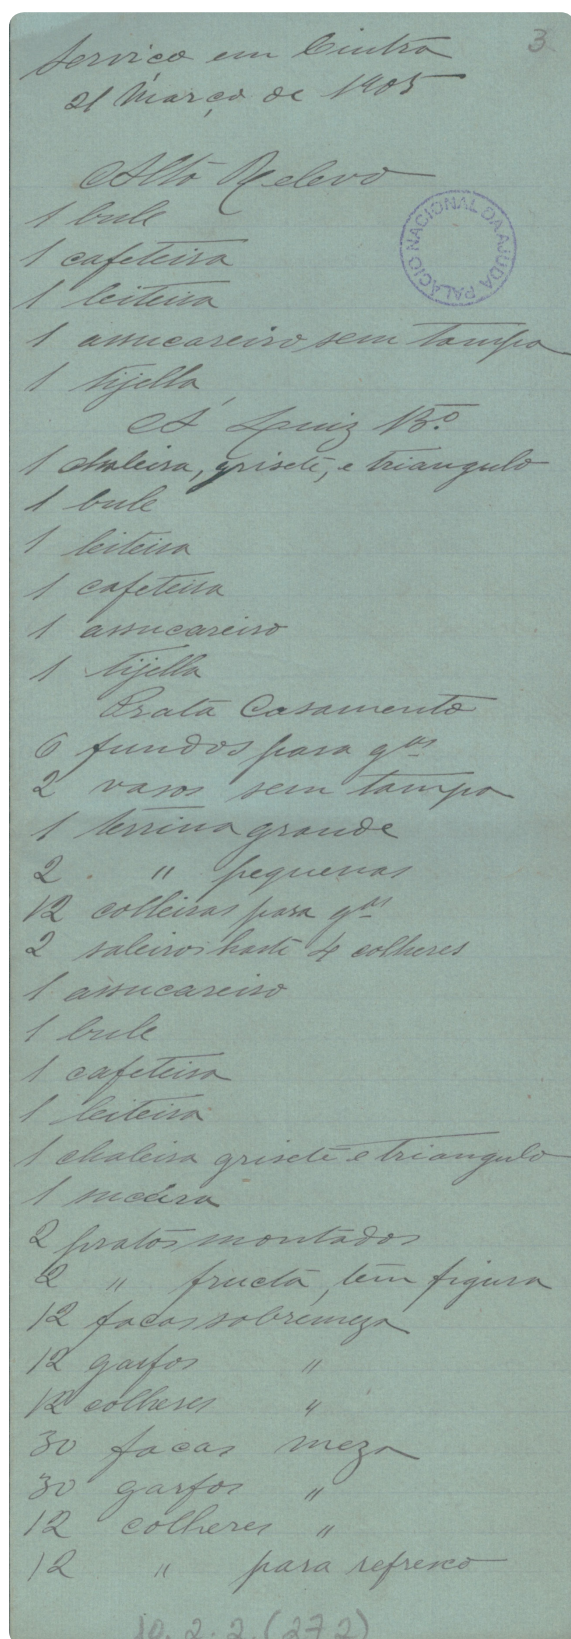 3
Serviço em Cintra
21 Março de 1905
Alto Relevo
PALÁCIO NACIONAL DA AJUDA
1 bule
1 cafeteira
1 leiteira
1 assucareiro sem tampa
1 tijella
Luiz 15.º
1 chaleira, grisete, e triangulo
1 bule
1 leiteira
1 cafeteira
1 assucareiro
1 tijella
Prata Casamento
6 fundos para g.as
2 vasos sem tampa
1 terrina grande
2 " pequenas
12 colheiras para g.as
2 saleiros haste 4 colheres
1 assucareiro
1 bule
1 cafeteira
1 leiteira
1 chaleira grisete e triangulo
1
2 pratos montados
2 " fructa, têm figura
12 facas sobremeza
12 garfos "
12 colheres "
30 facas meza
30 garfos "
12 colheres "
12 " para refresco
10. 2. 2. (272)